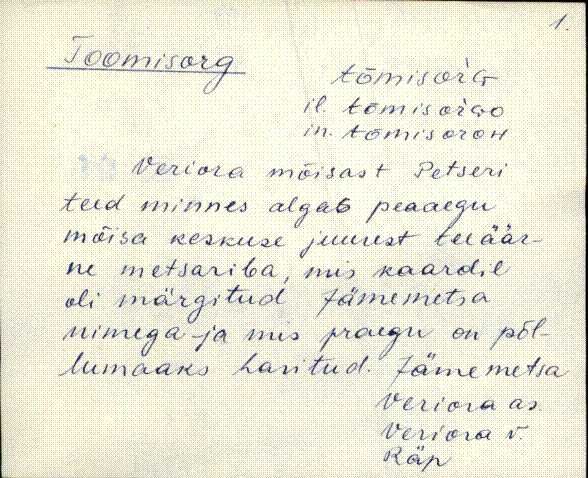 1.
Toomisorg
tōmisor̀ɢ
il. tōmisor̀ɢo
in. tōmisoroʜ
Veriora mõisast Petseri
teed minnes algab peaaegu
mõisa keskuse juurest teeäär-
ne metsariba, mis kaardil
oli märgitud Jämemetsa
nimega ja mis praegu on põl-
lumaaks haritud. Jämemetsa
Veriora as.
Veriora v.
Räp